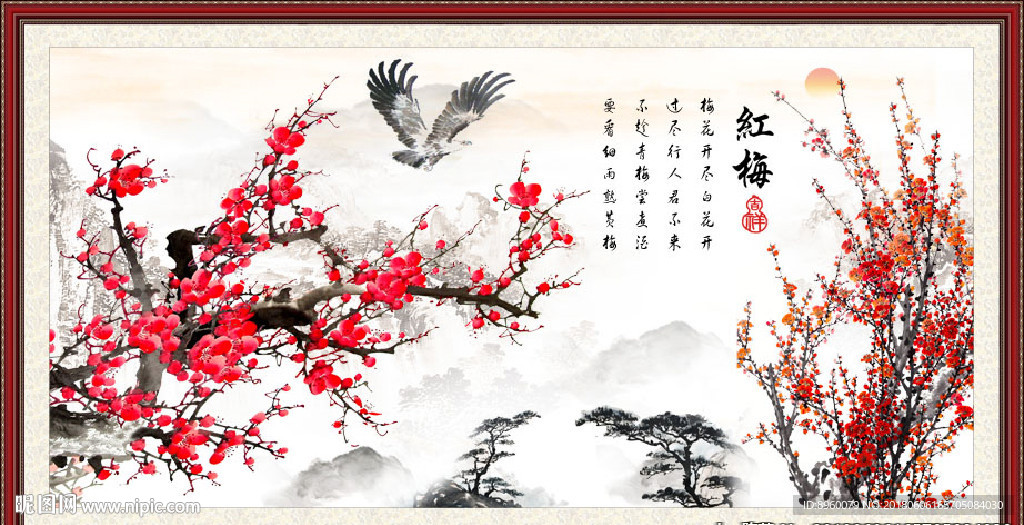 紅梅
吉祥
梅花开尽白花开
过尽行人君不来
不趁青梅尝煮酒
要看细雨熟黄梅
昵图网 www.nipic.com
ID:8960029 NO:20180606163705084030